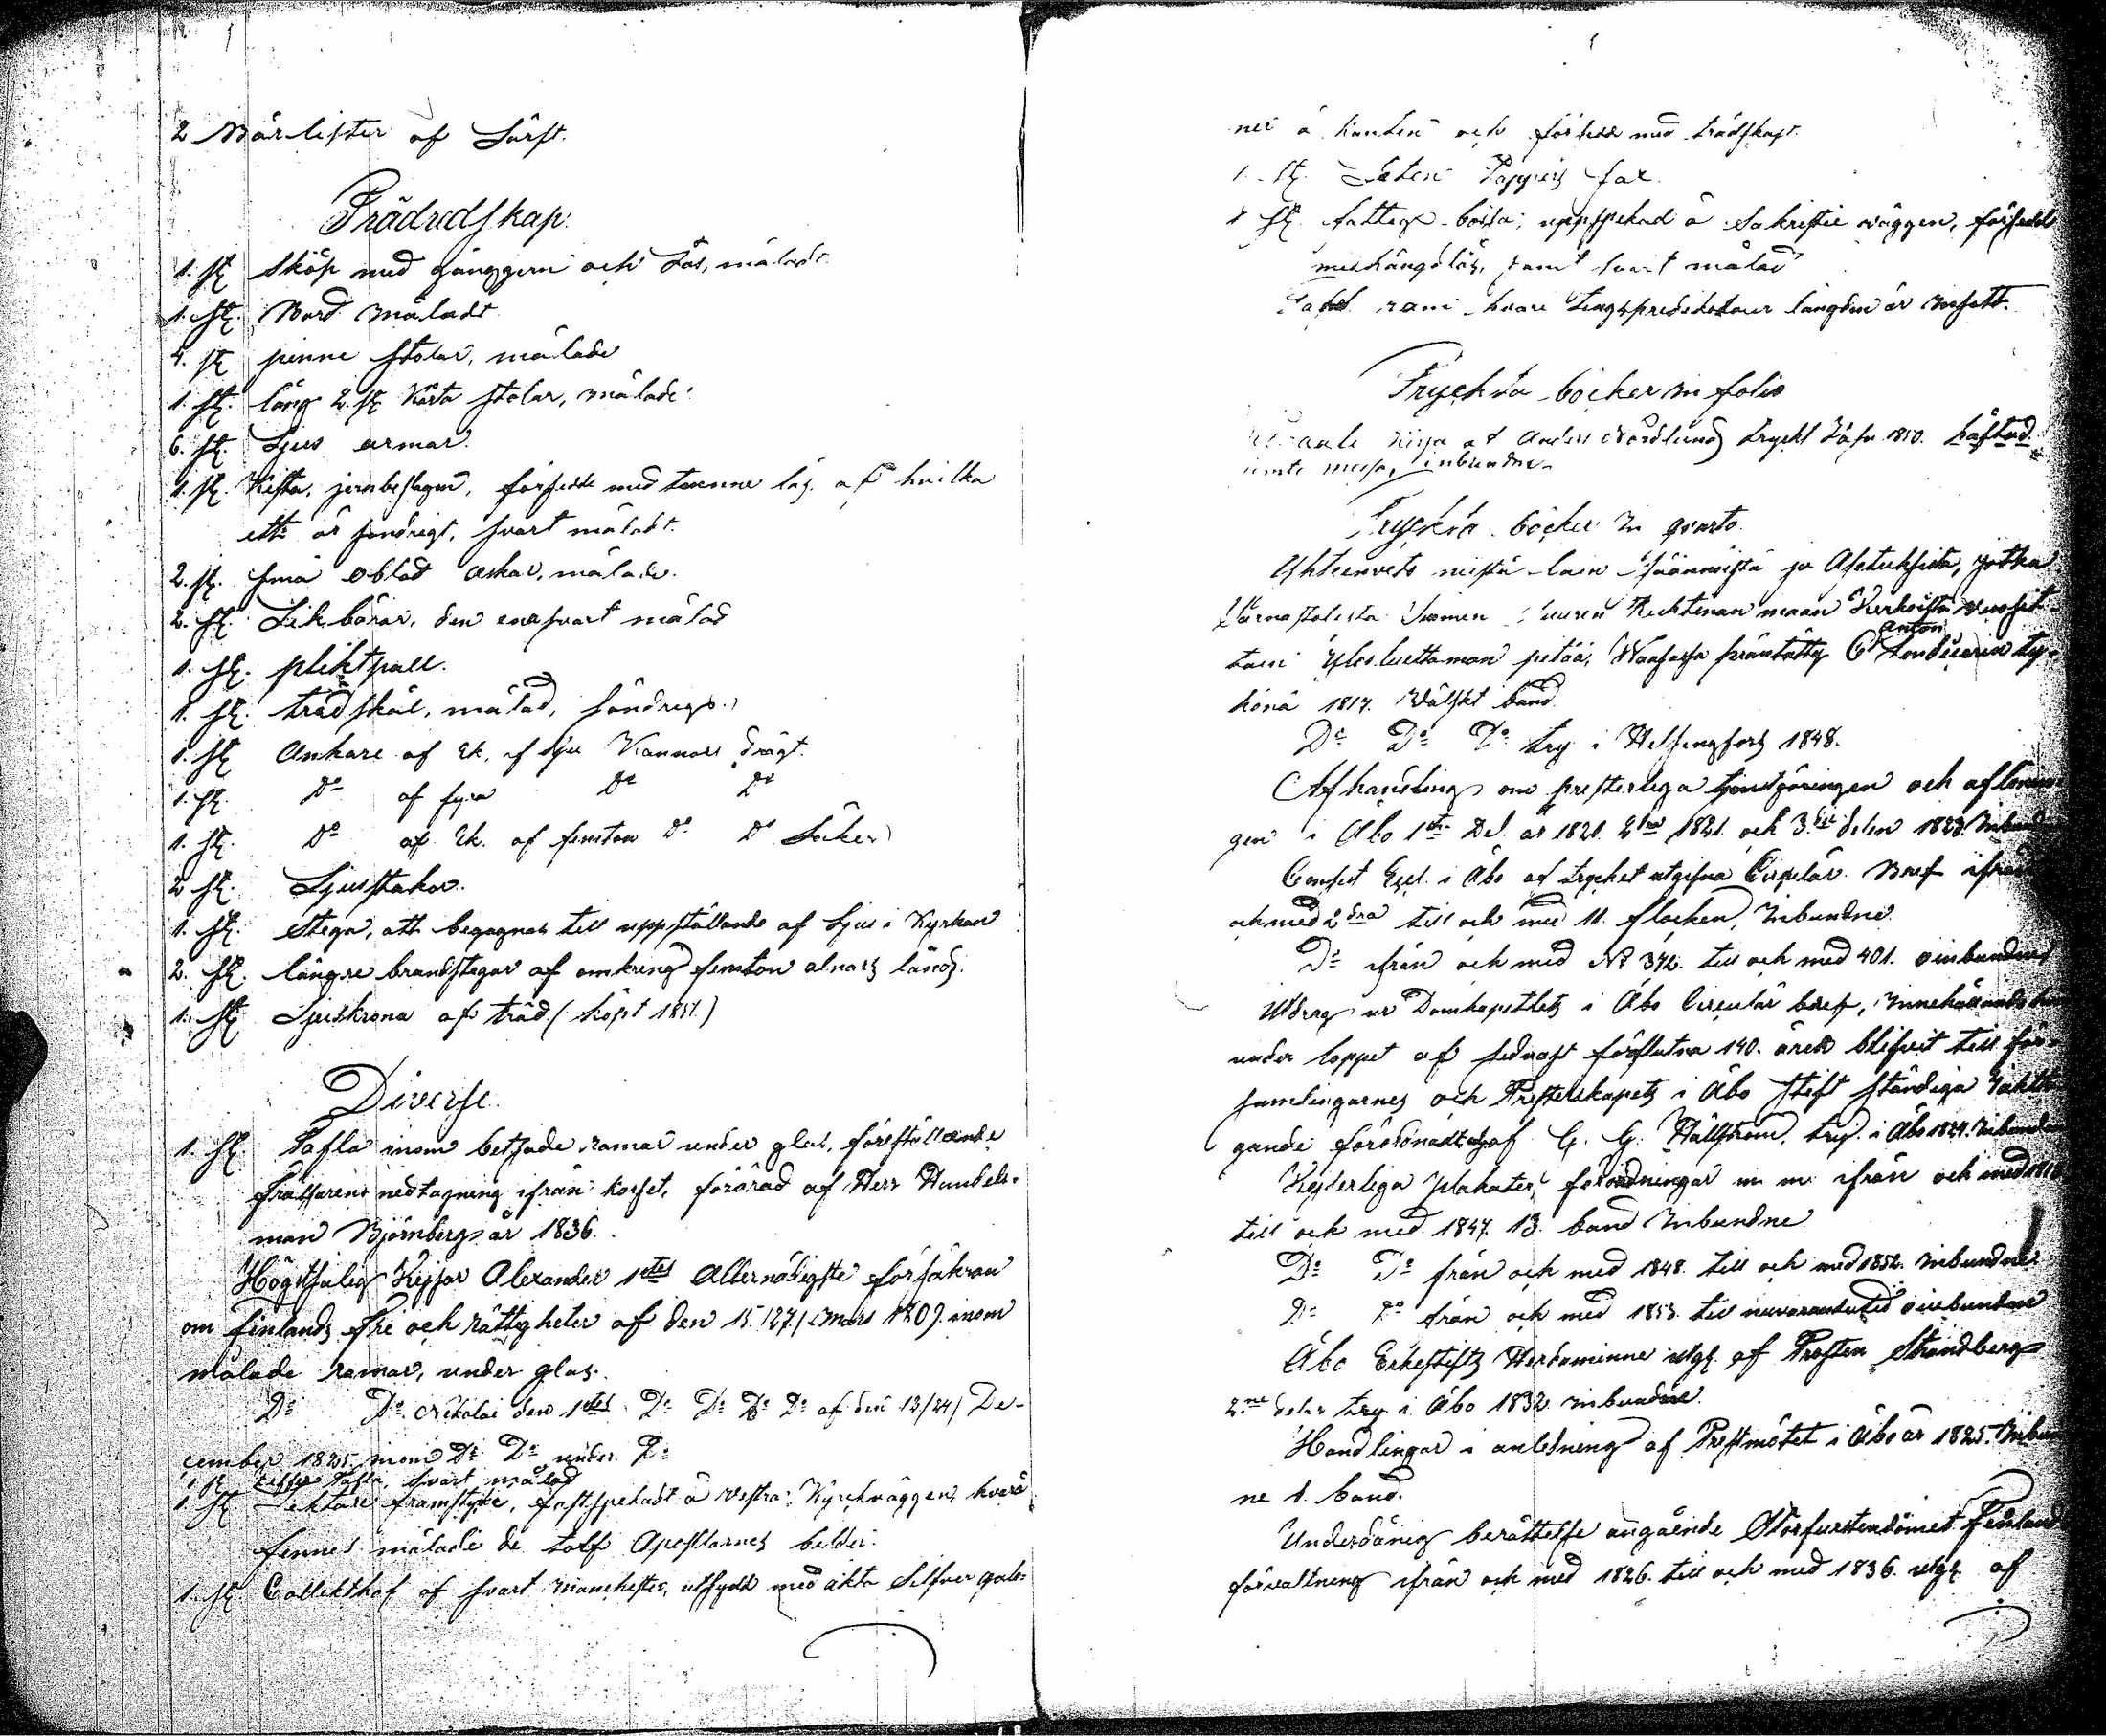 2 Bårlister af Lärft.
Trädredskap:
1. st skåp med gånggern och Lås, måladt.
1. st. Bord måladt
4. st pinne stolar, målade
1. st. lång 2. st korta stolar, målade
6. st. Ljus armar.
1. st. Kista, jernbeslagen, försedd med tvenne lås, af hvilka
ett är söndrigt, svart måladt.
2. st. små oblad askar, målade.
2. st. Likbårar, den ena svart målad
1. st. pliktpall.
1. st. trädskål, målad, söndrig.
1. st Ankare af Ek, af sju Kannors drägt.
1. st. Do af fyra Do Do
1. st. Do af Ek. af femton Do Do Läker
2 st. Ljusstakar.
1. st. Stega, att begagnas till uppställande af Ljus i Kyrkan
2. st. längre brandstegar af omkring femton alnars längd.
1. st Ljuskrona af träd (köpt 1851.)
Diverse.
1. st. Tafla inom betsade ramar under glas, föreställande
Frälsarens nedtagning ifrån korset, förärad af Herr Handels-
man Björnberg år 1836.
Högstsalig Kejsar Alexander 1stes Allernådigste försäkran
om Finlands Fri och rättigheter af den 15./27./ Mars 1809. inom
målade ramar, under glas.
Do Do Nikolai den 1stes Do Do Do Do af den 12/24/ De-
cember 1825. inom Do Do under Do
1 st Tafla, svart målad
1. st Läktare framstycke, fastspikadt å vestra Kyrckväggen, hvarå
finnes målade de tolf Apostlarnes bilder.
1. st Collekthåf af svart Manchester, utsydd med äkta Silfver galo-
ner å kanten och försedd med trädskaft.
1. st.
1 st. fattigbössa, uppspikad å Sakristie väggen, försedd
med hänglås, samt svart målad
ram hvari längden är insatt.
Tryckta böcker in folio
af Anders Nordlund tryckt 1850. häftad
inbunden
Tryckta böcker in qvarto.
Yhteenveto niistä lain Säännöistä ja Asetuksista, jotka
Saarnastolista Suomen Suuren Ruhtinan maan Kirkoista vuosit-
tain Ylösluettaman pitää, Waasassa präntätty C Anton Londicerin ty-
könä 1817. Wälskt band
Do Do Do try i Helsingfors 1848.
Afhandling om presterliga tjenstgöringen och aflönin-
gen i Åbo 1sta Del. år 1820. 2dra 1821. och 3.die delen 1823. Inbund
Consist Eccl. i Åbo af trycket utgifna Cirkulär Bref ifrån
och med 2dra till och med 11. flocken, Inbundne
Do ifrån och med No 342. till och med 401. oinbundne
Utdrag ur Domkapitlets i Åbo Circulär bref, Innehållande
under loppet af sednast förflutna 140. åren blifvit till för-
samlingarnes och Presterskapets i Åbo Stift ständiga iaktta
gande förordnadt af G. G. Hällström. try. i Åbo 1829. Inbunden
Kejserliga Plakater, förordningar m m ifrån och med 1810
till och med 1847. 13 band Inbundne
Do Do från och med 1848. till och med 1852. Inbundne
Do Do från och med 1853. till nuvarande tid oinbundne
Åbo Erkestifts Herdaminne utgf. af Prosten Strandberg
2ne delar try i Åbo 1832 Inbundne.
Handlingar i anledning af Prestmötet i Åbo år 1825. Inbund
ne 1. band.
Underdånig berättelse angående Storfurstendömet Finland
förvaltning ifrån och med 1826. till och med 1836. utgf. af